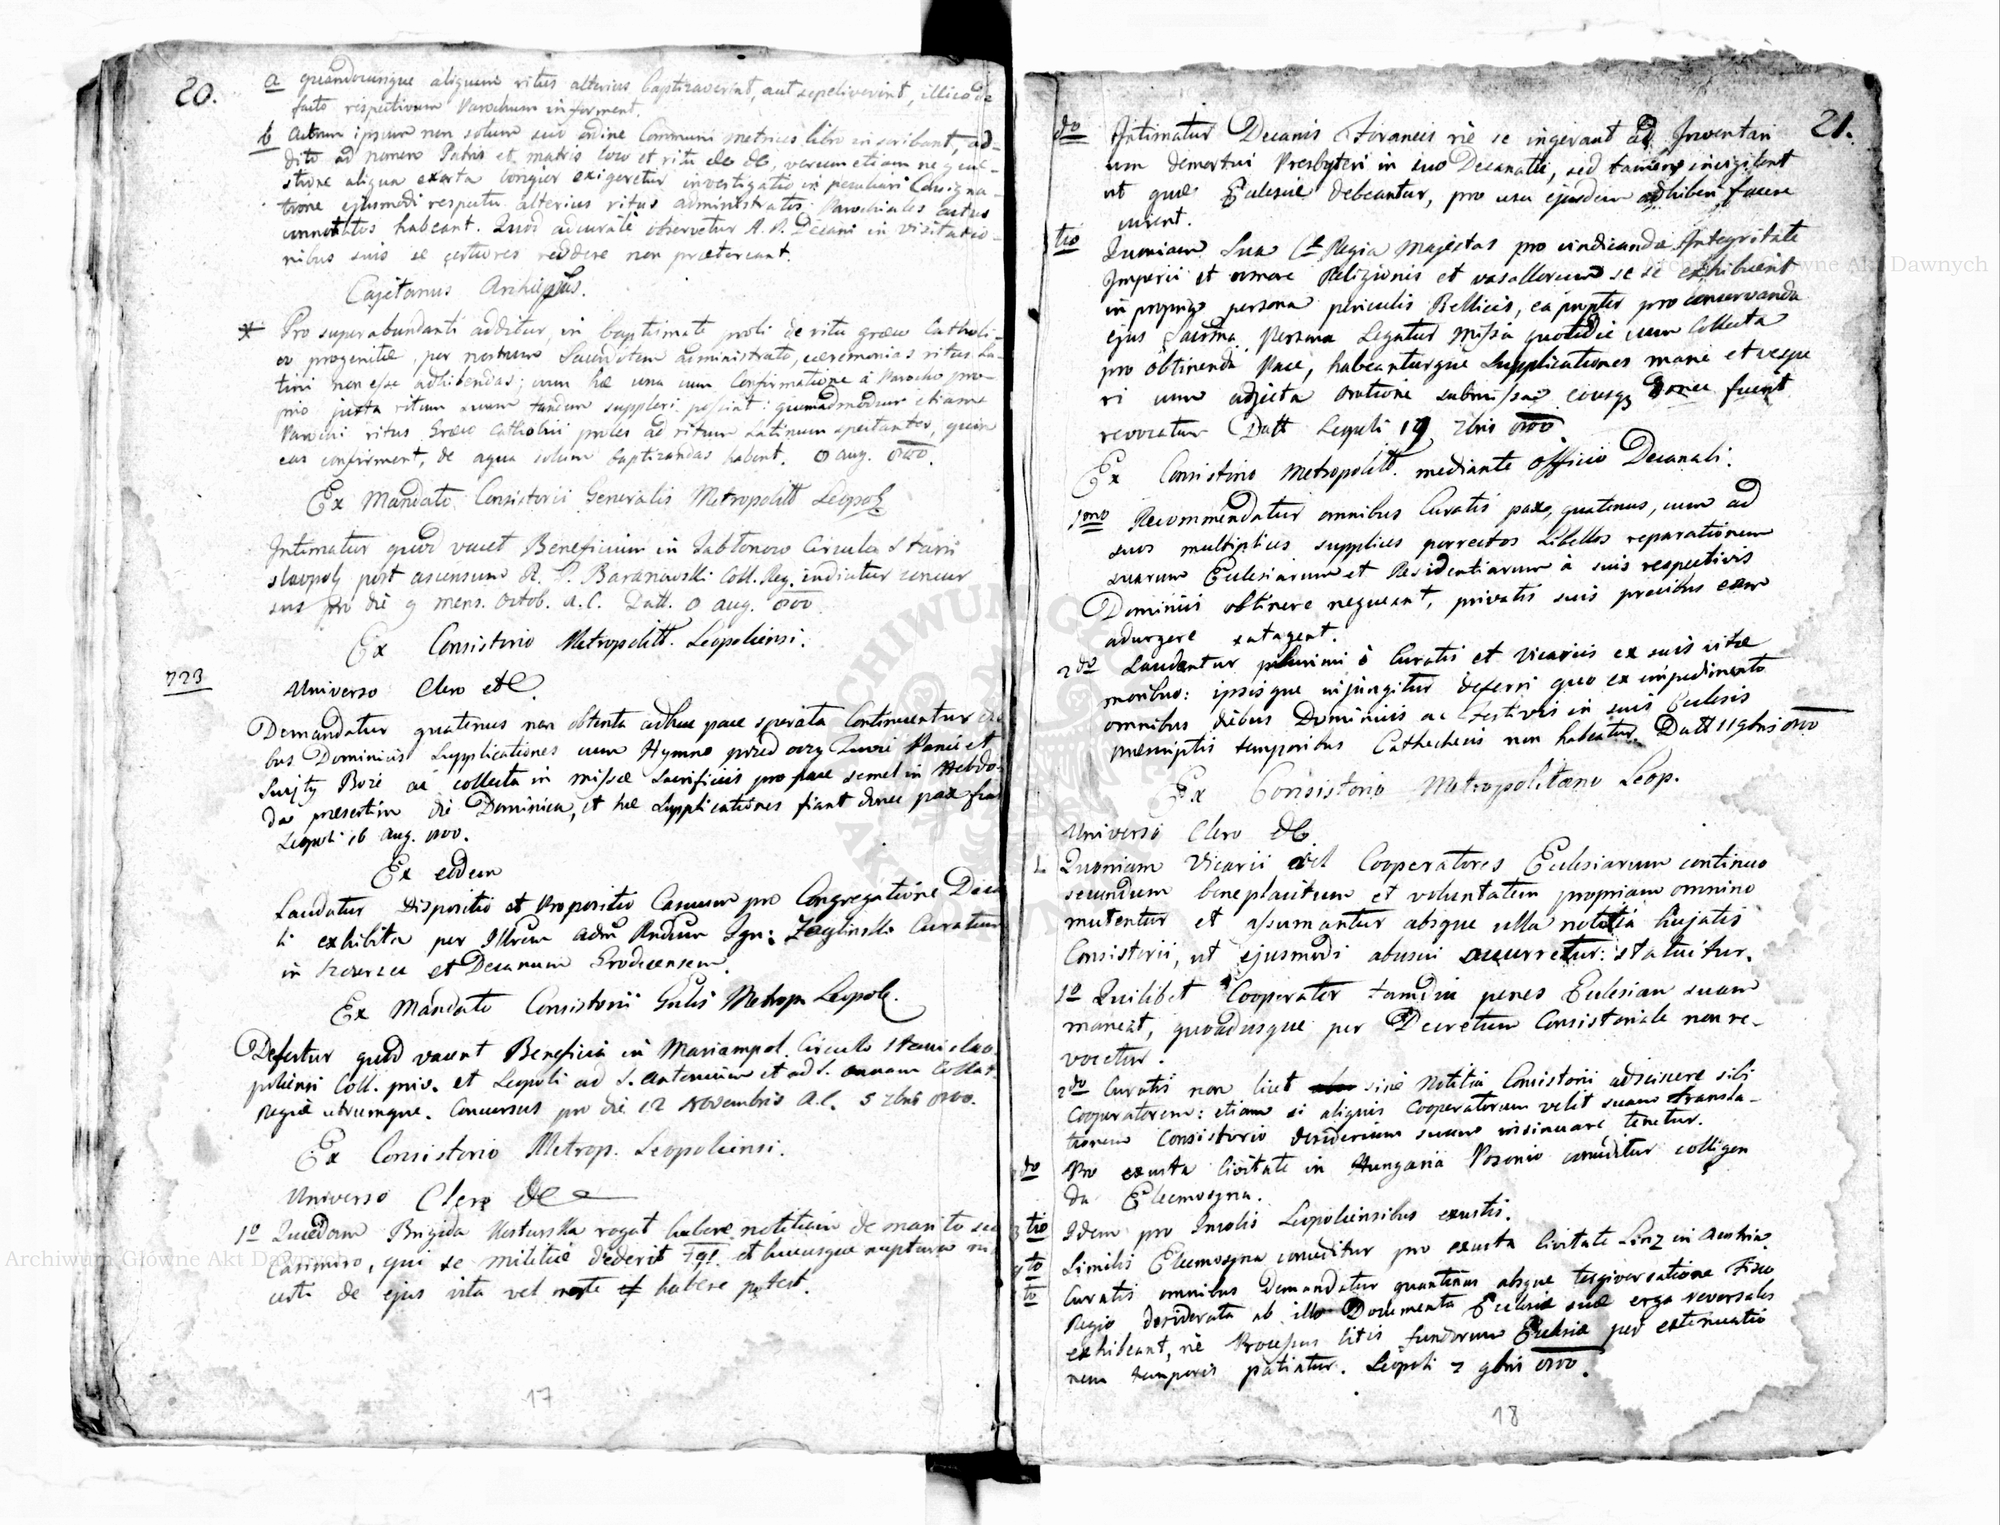 20.
a quandocunque aliquem ritus alterius baptizaverint, aut sepeliverint, illico de
facto respectivum Parochum informent.
b Actum ipsum non solum suo ordine Communi metrices libro inscribant, ad-
dito ad nomen Patris et matris loco et ritu verum etiam ne quae-
stione aliqua exorta longior exigeretur investigatio in peculiari Consigna-
tione ejusmodi respectu alterius ritus administratos Parochiales actus
connotatos habeant. Quod accurate observetur A. R. Decani in visitatio-
nibus suis se certiores reddere non praetereant.
Cajetanus Archieppus.
* Pro superabundanti additur, in baptismate proli de ritu graeco Catholi-
co progenitae per nostrum Sacerdotem administrato, ceremonias ritus La-
tini non esse adhibendas; cum hae una cum Confirmatione à Parocho pro-
prio juxta ritum suum tandem suppleri possint: quemadmodum etiam
Parochi ritus Graeco Catholici proles ad ritum Latinum spectantes, quin
eas confirment, de aqua solum baptizandas habent. aug.
Ex Mandato Consistorii Generalis Metropolitt Leopol
Intimatur quod vacet Beneficium in Jablonow Circulo Stani
slaopol post ascensum R. P. Baranowski Coll. Reg. indicitur concur
sus pro die 9 mens. Octob. A. C. Datt. aug.
Ex Consistorio Metropolitt. Leopoliensi.
773
Universo Clero etc.
Demandatur quatenus non obtenta adhuc pace sperata Continuentur
bus Dominicis Supplicationes cum Hymno przed oczy Twoie Panie et
Swięty Boże ac collecta in missae Sacrificiis pro pace semel in Hebdo-
da praesertim die Dominica, et hae Supplicationes fiant donec pax
Leopoli 16 aug.
Ex eodem
Laudatur Dispositio et Propositio Casuum pro Congregatione
li exhibita per Illrem Adm Rndum Ign: Curatum
in et Decanum Grodecensem.
Ex Mandato Consistorii Gnlis Metrop. Leopol.
Defertur quod vacent Beneficia in Mariampol. Circulo Stanislao-
poliensi Coll. priv. et Leopoli ad S. Antonium et ad S. Annam Collat.
Regiae utrumque. Concursus pro die 12 Novembris A. C. 5
Ex Consistorio Metrop. Leopoliensi.
Universo Clero
1o Quaedam Brigida rogat habere notitiam de marito suo
Casimiro, qui se militiae dederit et hucusque nuptum
certi de ejus vita vel morte habere potest.
17
21.
do Intimatur Decanis Foraneis ne se ingerant ad Inventari
um demortui Presbyteri in suo Decanatu, sed tamen invigilent
ut quae Ecclesiae debeantur, pro usu ejusdem adhiberi facere
curent.
tio Quoniam Sua Regia Majestas pro vindicanda Integritate
Imperii et amore Religionis et vasallorum se se exhibuerit
in propria persona periculis Bellicis, ea propter pro conservanda
ejus Sacrma Persona Legatur Missa quotidie cum Collecta
pro obtinenda Pace, habeanturque Supplicationes mane et vespe
ri cum adjecta oratione submissae donec fuerit
revocatum Datt Leopoli 19
Ex Consistorio Metropolitt. mediante Officio Decanali.
1mo Recommendatur omnibus Curatis quatenus, cum ad
suos multiplices supplices porrectos Libellos reparationem
suarum Ecclesiarum et Residentiarum à suis respectivis
Dominiis obtinere nequeant, privatis suis precibus eam
adurgere satagant.
2do Laudantur plurimi è Curatis et Vicariis ex suis vitae
moribus: ipsisque injungitur deferri quo ex impedimento
omnibus diebus Dominicis ac Festivis in suis Ecclesiis
praescriptis temporibus Cathechesis non habeatur. Datt 11 9bris
Ex Consistorio Metropolitano Leop.
Universo Clero
Quoniam Vicarii vel Cooperatores Ecclesiarum continuo
secundum beneplacitum et voluntatem propriam omnino
mutentur et assumantur absque ulla notitia hujatis
Consistorii, ut ejusmodi abusui occurretur: statuitur.
1o Quilibet Cooperator tamdiu penes Ecclesiam suam
maneat, quoadusque per Decretum Consistoriale non re-
vocetur.
2do Curatis non licet sine Notitia Consistorii adsciscere sibi
Cooperatorem: etiam si aliquis Cooperatorum velit suam transla-
tionem Consistorio desiderium suum insinuare tenetur.
do Pro exusta Civitate in Hungaria Posonio conceditur colligen
da Eleemosyna.
3tio Idem pro Incolis Leopoliensibus exustis.
4to Similis Eleemosyna conceditur pro exusta Civitate Linz in Austria.
to Curatis omnibus Demandatur quatenus absque tergiversatione Fisco
Regio desiderata ab illo Documenta Ecclesiae suae erga reversales
exhibeant, ne Processus litis fundorum Ecclesiae per extenuatio
nem temporis patiatur. Leopoli 7 9bris
18
ARCHIWUM GŁÓWNE AKT DAWNYCH
Archiwum Główne Akt Dawnych
Archiwum Główne Akt Dawnych